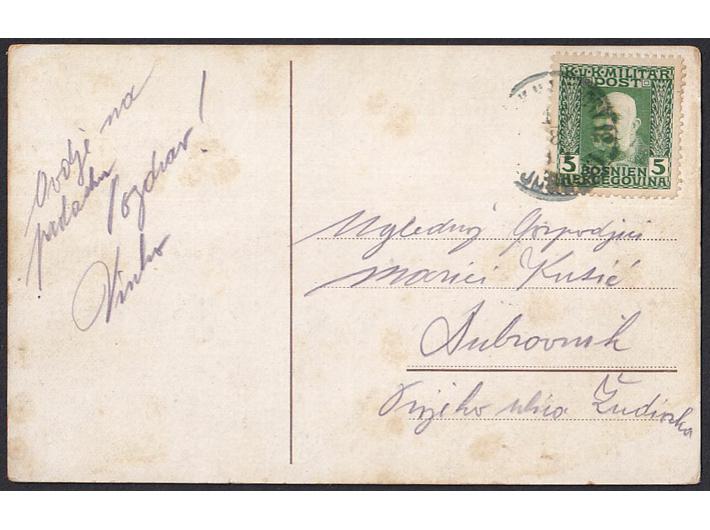 Ovdje na
prolasku
Pozdrav!
Vinko
K.u.K. MILITÄR
POST
5 5
BOSNIEN
HERCEGOVINA
Uglednoj Gospodjici
Marici Kusić
Dubrovnik
ulica Žudioska